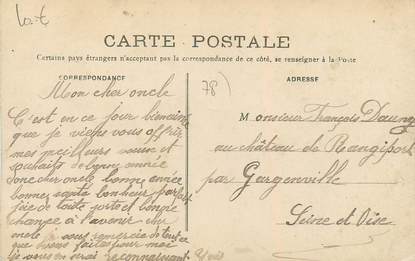 CARTE POSTALE
Certains pays étrangers n'acceptant pas la correspondance de ce côté, se renseigner à la Poste
CORRESPONDANCE
ADRESSE
78)
Mon cher oncle
C'est en ce jour
que je viens vous offrir
mes meilleurs voeux et
souhaits de bonne année
donc cher oncle bonne année
bonne santé bonheur parfait
joie de toute sorte et bonne
chance à l'avenir cher
oncle je vous remercie de tout ce
que vous faites pour
je vous en serai reconnaissant
Monsieur François
au château de Rangiport
par Gargenville
Seine et Oise